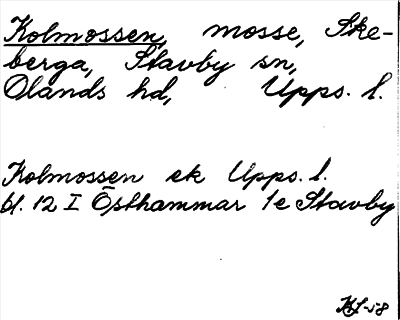 Kolmossen, mosse, Ske-
berga, Stavby sn,
Olands hd, Upps. l.
Kolmossen ek Upps. l.
bl. 12 I Östhammar 1e Stavby